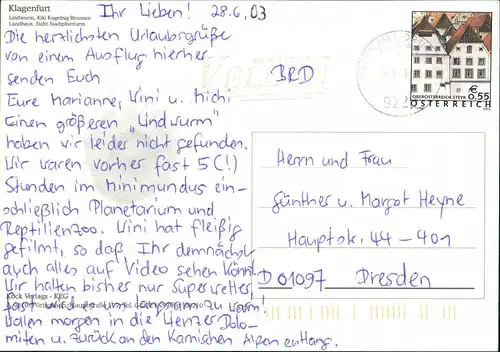 Klagenfurt
Landwurm, Kiki Kogelnig Brunnen
Landhaus, Sicht Stadtpfarrturm
Ihr Lieben! 28.6.03
Die herzlichsten Urlaubsgrüße
von einem Ausflug hierher
senden Euch
Eure Marianne, Wini u. Michi
Einen größeren "Lindwurm"
haben wir leider nicht gefunden.
Wir waren vorher fast 5 (!)
Stunden im Minimundus ein-
schließlich Planetarium und
Reptilienzoo. Wini hat fleißig
gefilmt, so daß Ihr demnächst
auch alles auf Video sehen könnt.
Wir hatten bisher nur Superwetter,
fast wieder im
Kock Verlags - KEG
zu warm!
Wollen morgen in die Lienzer Dolo-
miten u. zurück an den Karnischen Alpen entlang.
BRD
92
€ 0,55
OBERÖSTERREICH STEYR
ÖSTERREICH
Herrn und Frau
Günther u. Margot Heyne
Hauptstr. 44 - 401
D 01097 Dresden